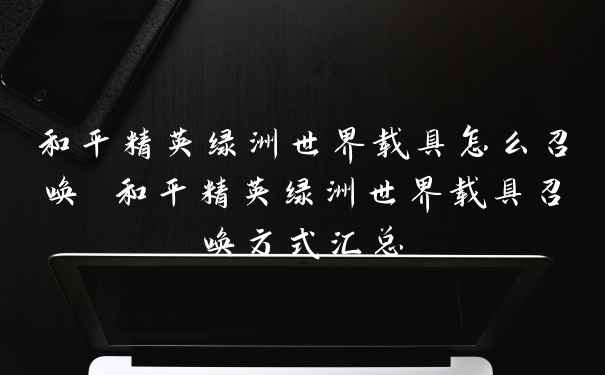 和平精英绿洲世界载具怎么召
唤 和平精英绿洲世界载具召
唤方式汇总